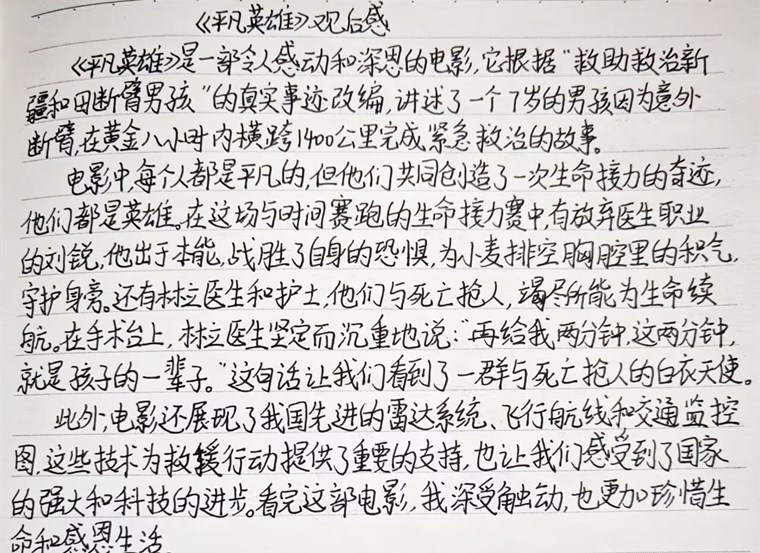 《平凡英雄》观后感
《平凡英雄》是一部令人感动和深思的电影,它根据“救助救治新
疆和田断臂男孩”的真实事迹改编,讲述了一个7岁的男孩因为意外
断臂,在黄金八小时内横跨1400公里完成紧急救治的故事。
电影中,每个人都是平凡的,但他们共同创造了一次生命接力的奇迹,
他们都是英雄。在这场与时间赛跑的生命接力赛中,有放弃医生职业
的刘锐,他出于本能,战胜了自身的恐惧,为小麦排空胸腔里的积气,
守护身旁。还有林立医生和护士,他们与死亡抢人,竭尽所能为生命续
航。在手术台上,林立医生坚定而沉重地说:“再给我两分钟,这两分钟,
就是孩子的一辈子。”这句话让我们看到了一群与死亡抢人的白衣天使。
此外,电影还展现了我国先进的雷达系统、飞行航线和交通监控
图,这些技术为救援行动提供了重要的支持,也让我们感受到了国家
的强大和科技的进步。看完这部电影,我深受触动,也更加珍惜生
命和感恩生活。